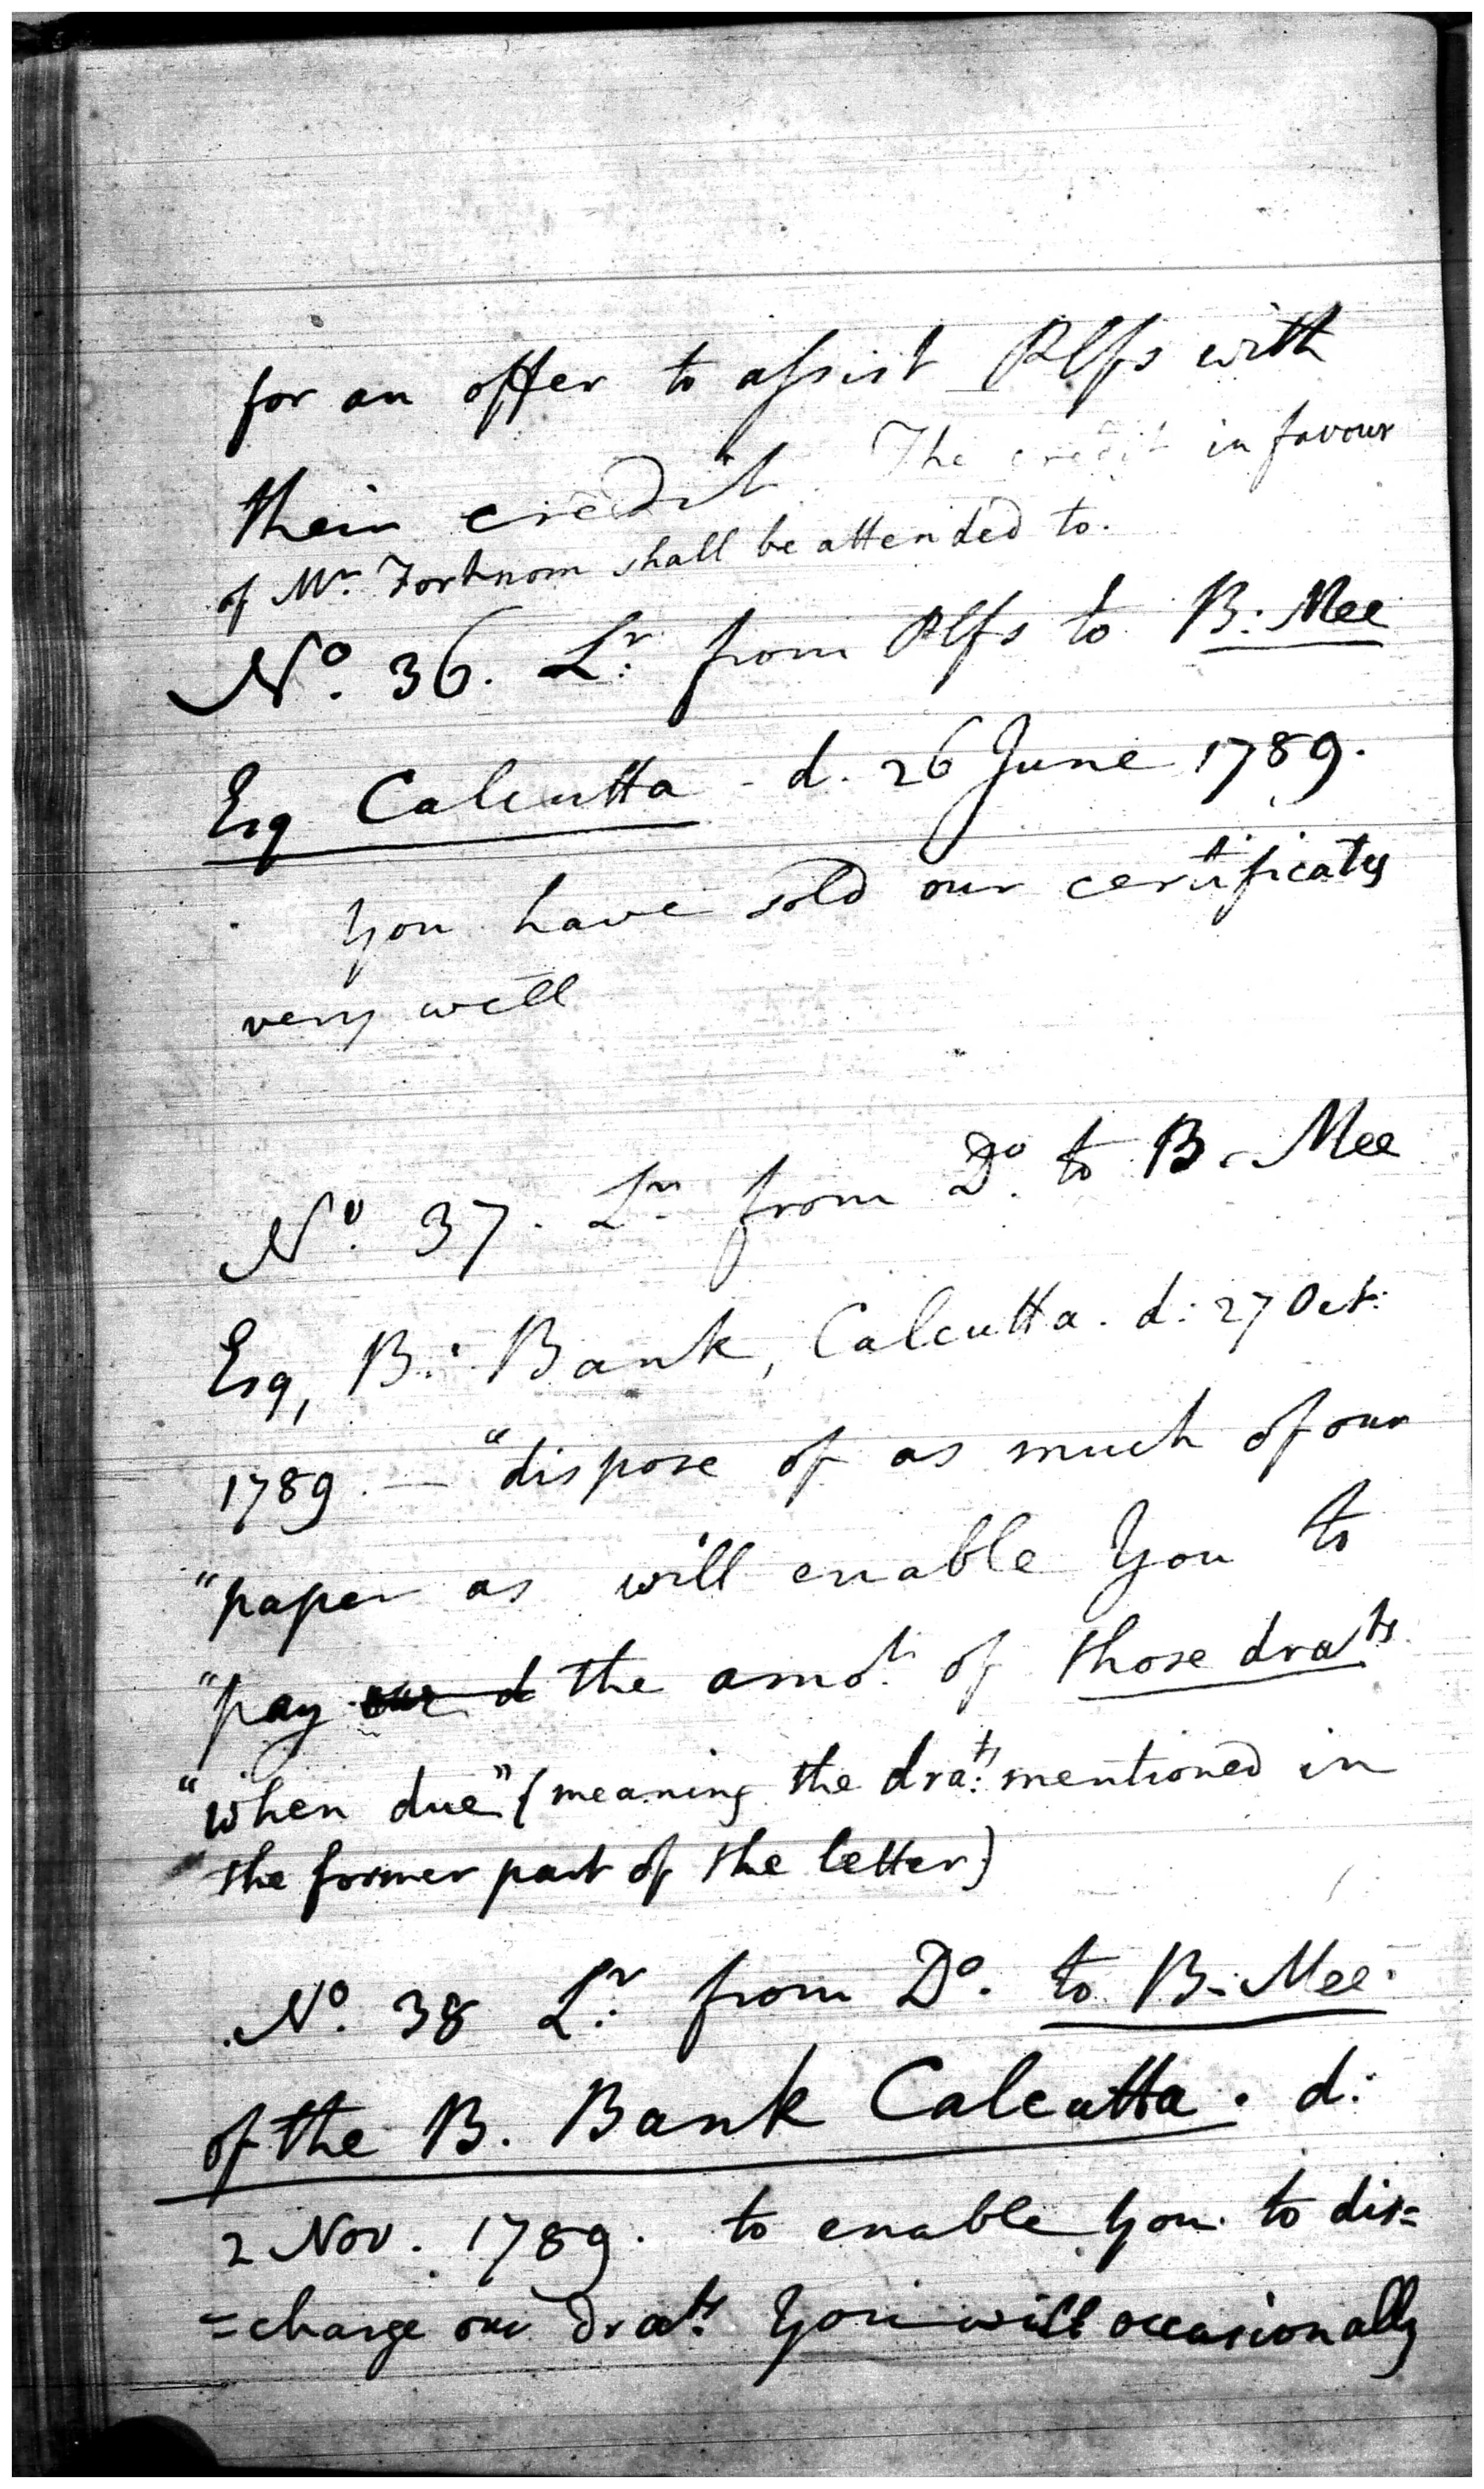 for an offer to assist Plfs with
their credit. The credit in favour
of Mr. Fortnom shall be attended to.
No. 36. Lr: from Plfs to B: Mee
Esq Calcutta - d. 26 June 1789.
You have sold our certificates
very well
No. 37. Lr from Do. to B. Mee
Esq, B: Bank, Calcutta. d: 27 Oct:
1789. — "dispose of as much of our
"paper as will enable You to
"pay our d the amot. of those drats
"when due" (meaning the dra:ts mentioned in
the former part of the letter)
No. 38 Lr: from Do. to B. Mee.
of the B. Bank Calcutta. d:
2 Nov. 1789. to enable You to dis=
=charge our drats: You will occasionally